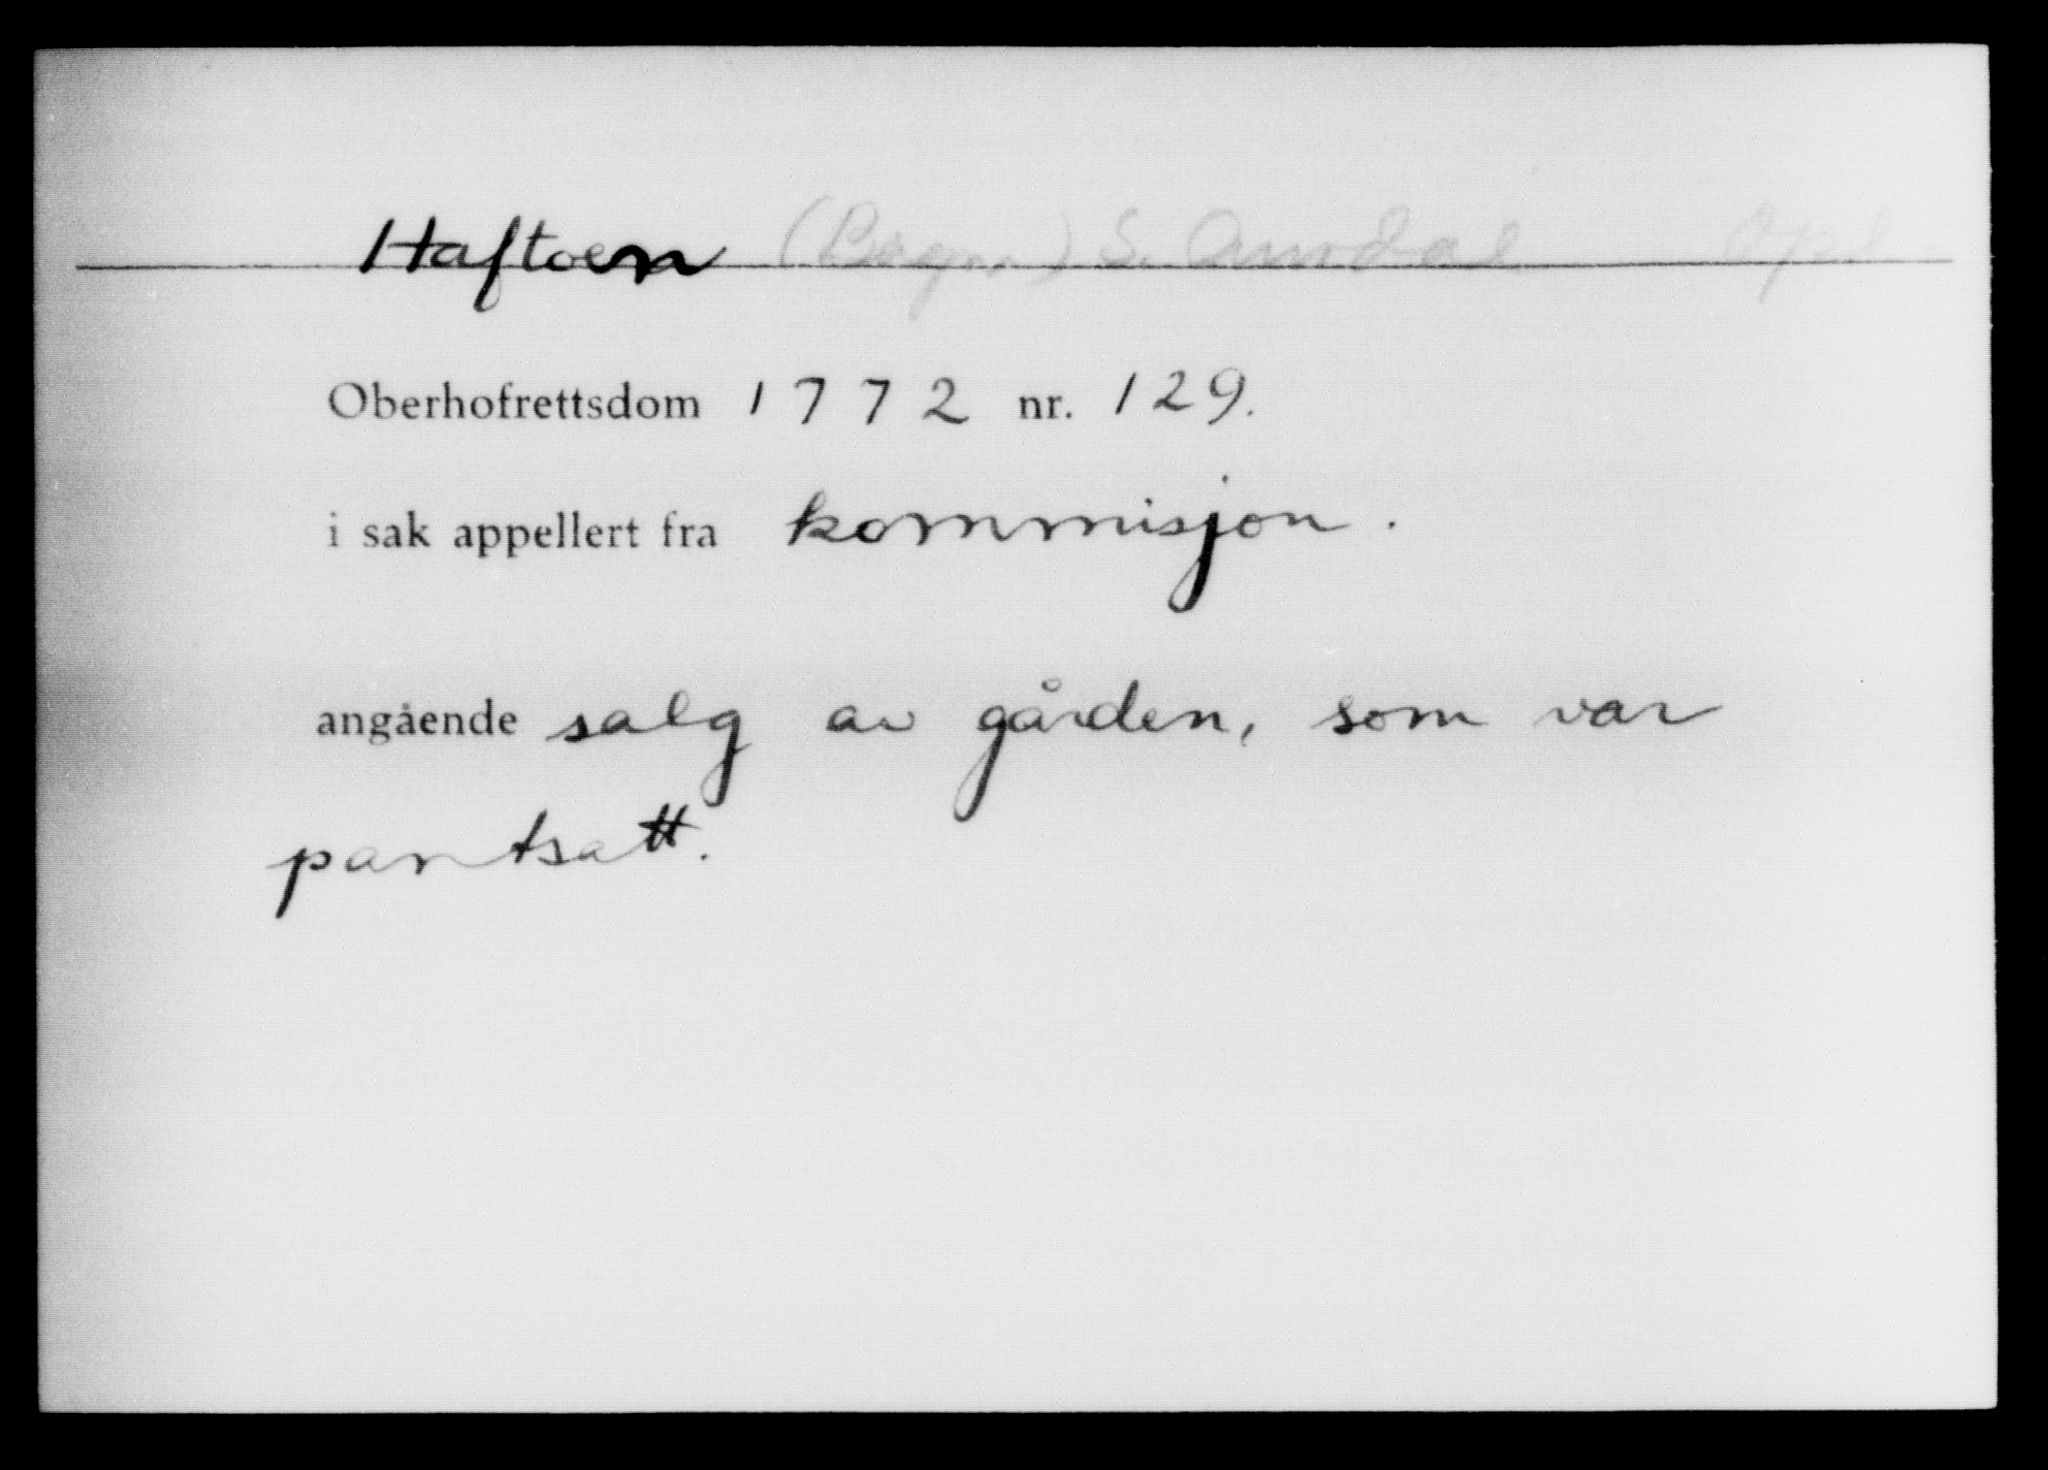 Haftoen (Bagn) S. Aurdal Opl.
Oberhofrettsdom 1772 nr. 129.
i sak appellert fra kommisjon.
angående salg av gården, som var
pantsatt.